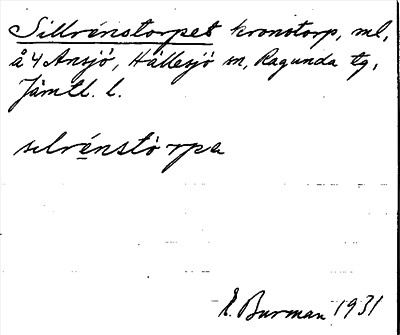 Sillrénstorpet kronotorp, ml,
å 4 Ansjö, Hällesjö sn, Ragunda tg,
Jämtl. l.
sɩlrénstòrpa
E. Burman 1931